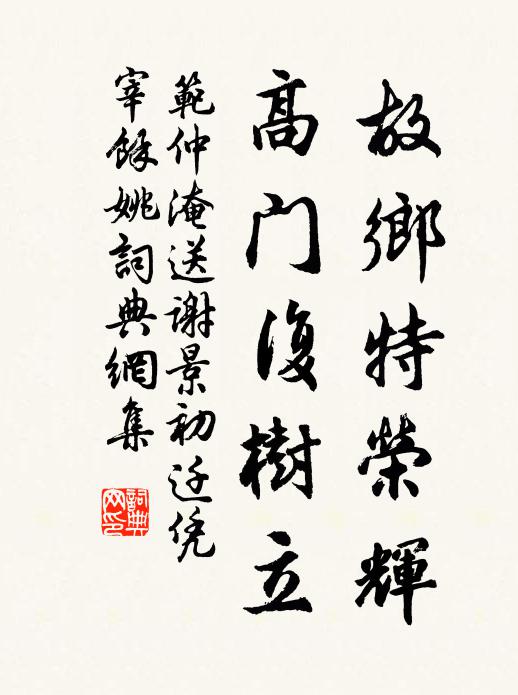 故鄉特榮輝
高門復樹立
範仲淹送謝景初迁凭
宰餘姚詞典網集
詞典
网印